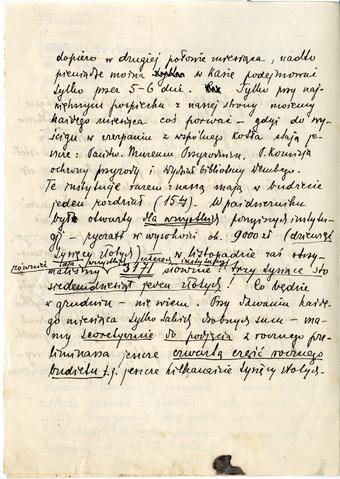 dopiero w drugiej połowie miesiąca, nadto
pieniądze można w kasie podejmować
tylko przez 5-6 dni. Tylko przy naj-
większym pośpiechu z naszej strony możemy
każdego miesiąca coś porwać – gdyż do wy-
ścigu w czerpaniu z wspólnego kotła stają je-
szcze: Państw. Muzeum Przyrodnicze, P. Komisja
ochrony przyrody i Wydział
Te instytucje razem z naszą mają w budżecie
jeden rozdział (15). W październiku
był otwarty dla wszystkich powyższych instytu-
cyj – ryczałt w wysokości ok. 9000 zł (dziewięć
tysięcy złotych), w listopadzie zaś otrzy-
również
maliśmy 3171 słownie: trzy tysiące sto
siedemdziesiąt jeden złotych! Co będzie
w grudniu – nie wiem. Przy dawaniu każde-
go miesiąca tylko takich drobnych sum – ma-
my teoretycznie do podjęcia z rocznego pre-
liminarza jeszcze czwartą część rocznego
budżetu t.j. jeszcze kilkanaście tysięcy złotych.